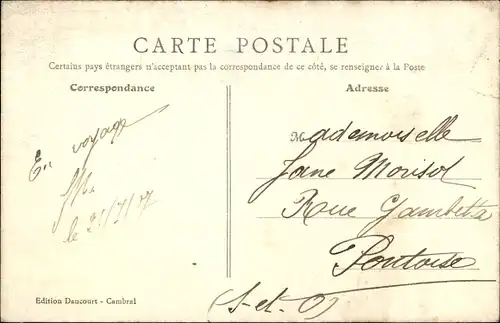 CARTE POSTALE
Certains pays étrangers n'acceptant pas la correspondance de ce côté, se renseigner à la Poste
Correspondance
Adresse
En voyage
le 21/7/07
Mademoiselle
Jane Morisot
Rue Gambetta
Pontoise
(S-et-O)
Edition Dancourt - Cambrai